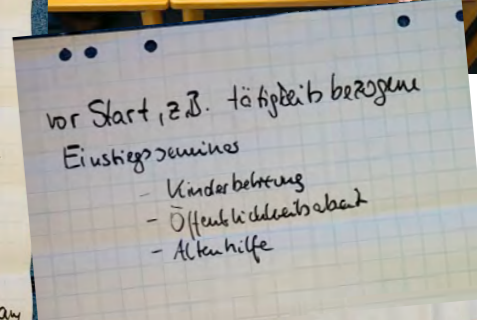 vor Start, z.B. tätigkeitsbezogene
Einstiegsseminar
- Kinderbetreuung
- Öffentlichkeitsarbeit
- Altenhilfe